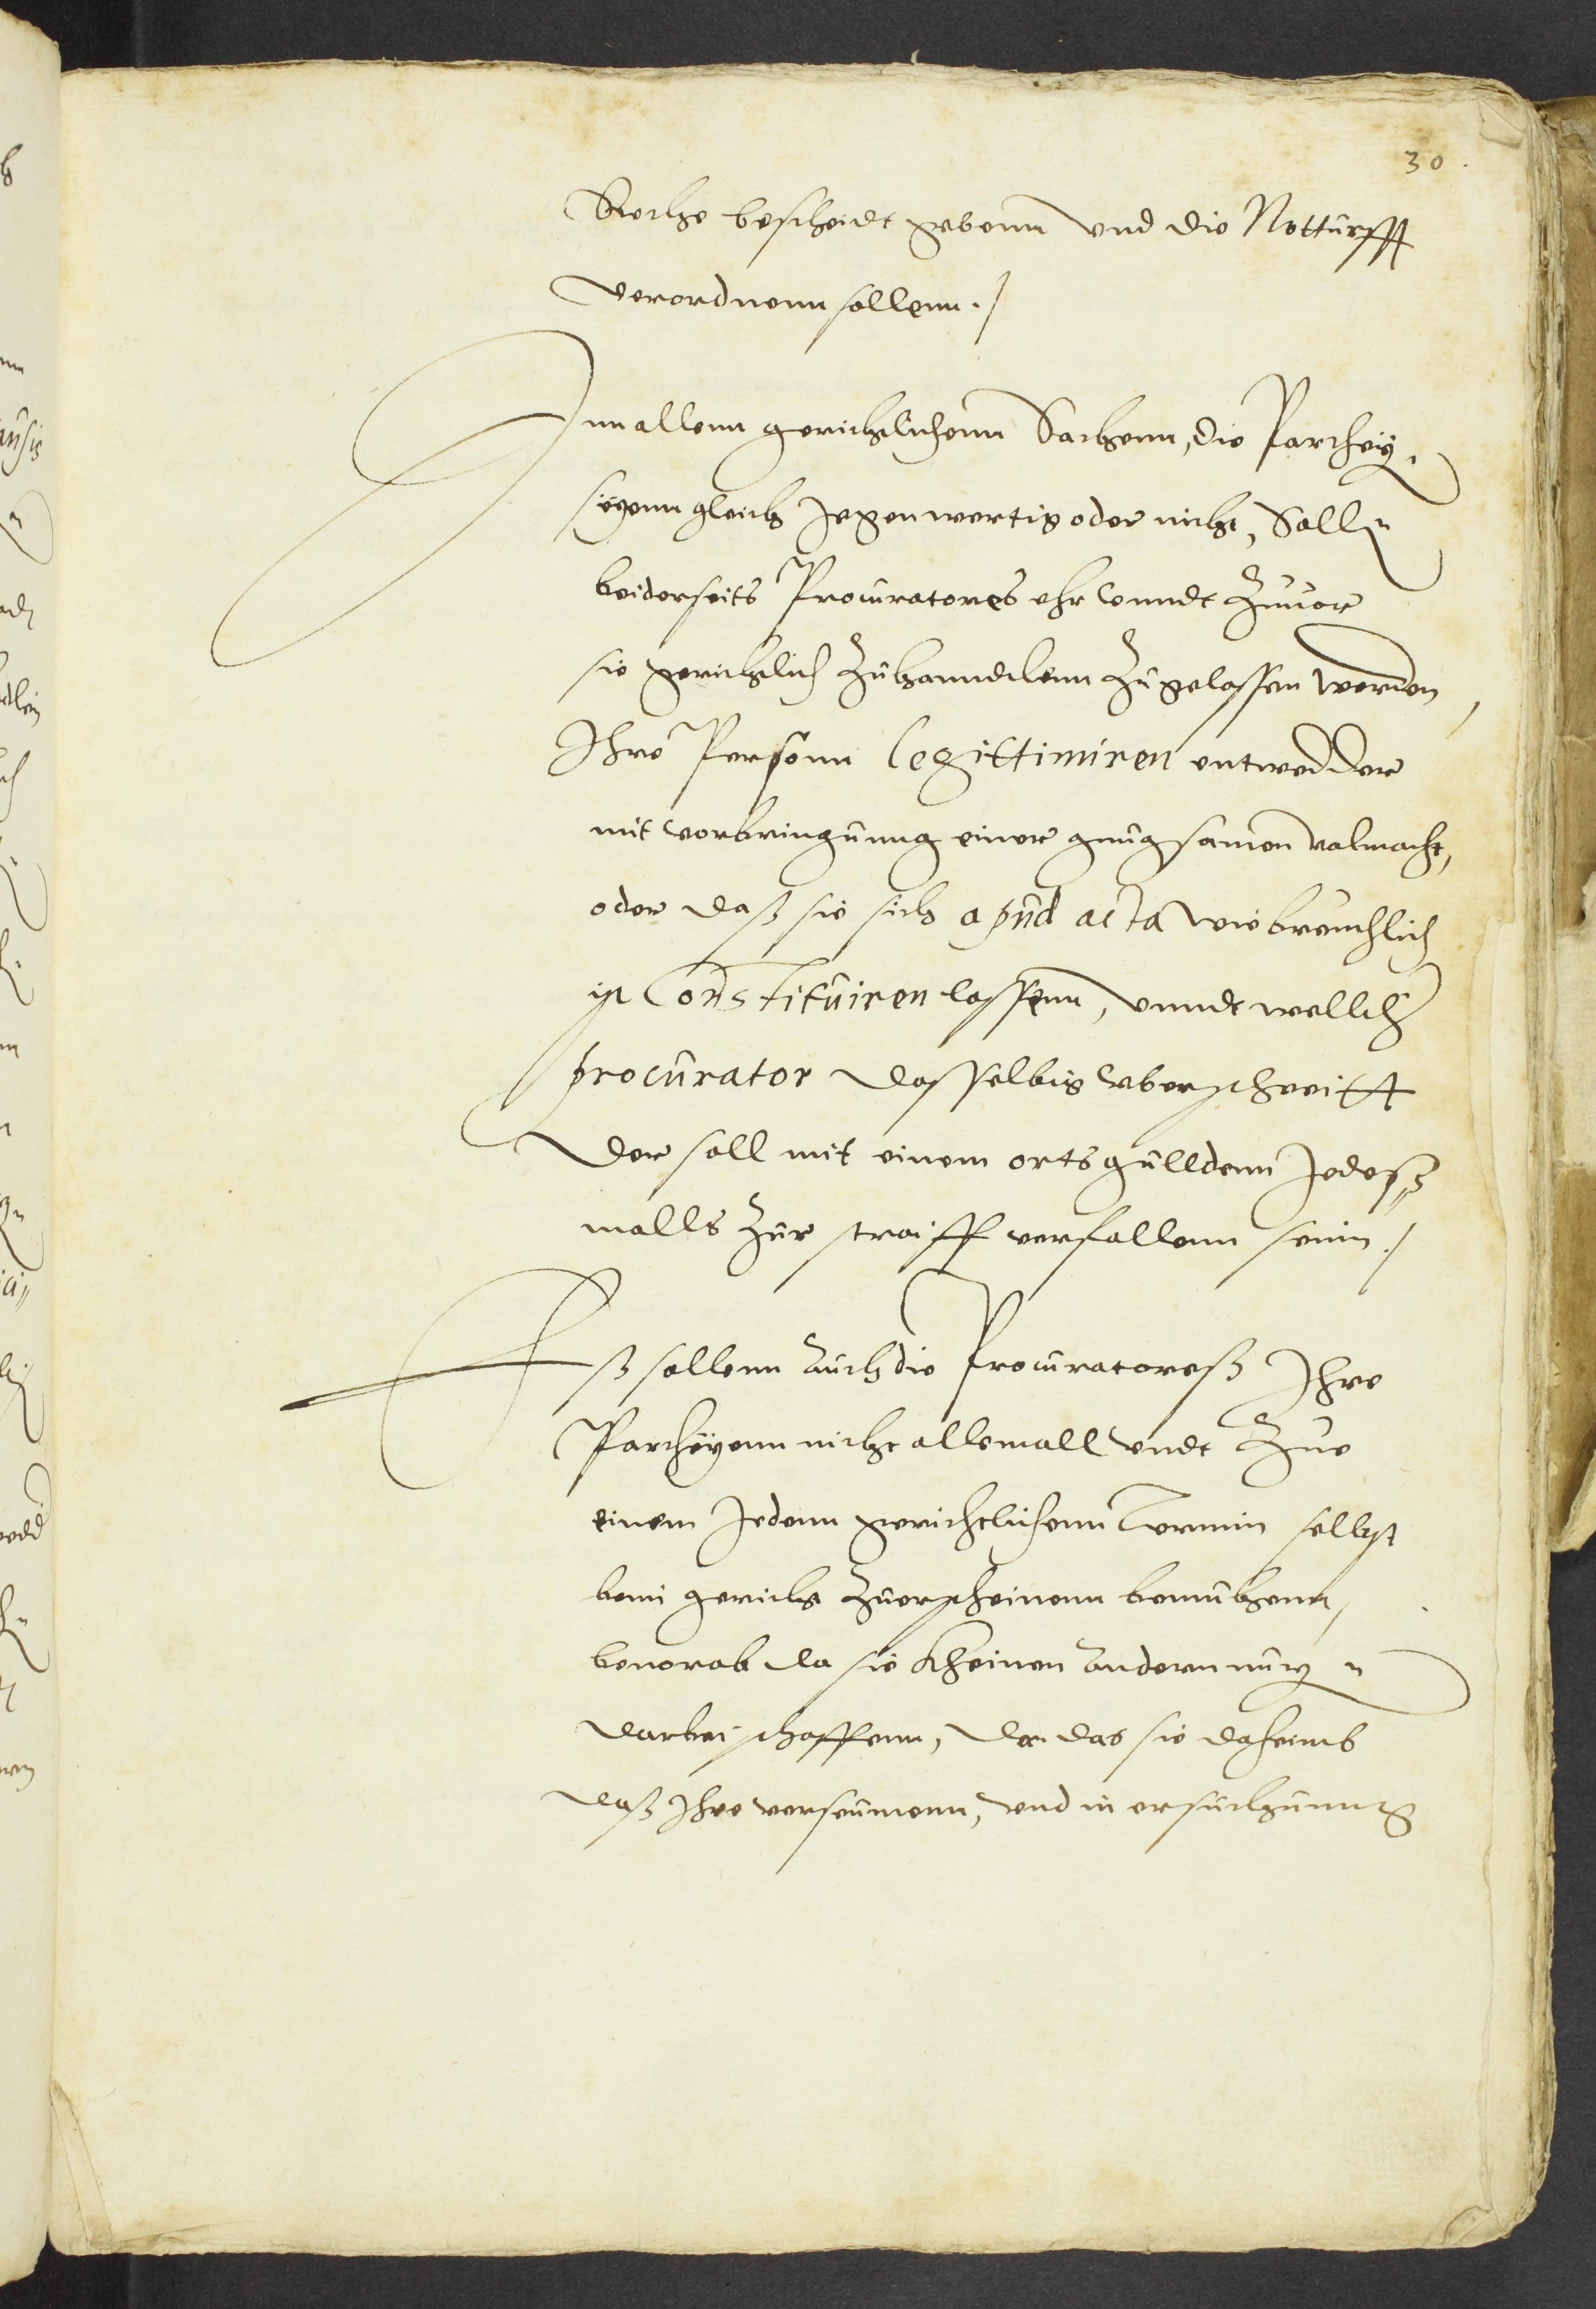 30.
Sieche bescheidt gebenn und die Notturfft
verordnenn sollenn./
Inn allenn gerichtlichenn Sachenn, die Partheÿ
seÿenn gleich Jegenwertig oder nicht, Solln
beiderseits Procuratores ehr vnndt zuuor
sie gerichtlich zuhanndlenn zugelassen werden,
Ihre Personn legittimiren entwedder
mit vorbringunng einer gnugsamen volmacht,
oder daß sie sich apud acta wie breuchlich
in Constituiren lassenn, vnndt wellicher
procurator dasselbig vberschreitt
der soll mit einem orts gulldenn Jedeß„
malls zur straiff verfallenn seinn./
Eß sollenn auch die Procuratoreß Ihre
Partheÿenn nicht allemall vndt zue
einem Jedenn gerichtlichenn Termin selbst
beim gericht zuerscheinenn bemuhenn,
beuorab da sie kheinen andern nutz
darbei schaffenn, dan das sie daheimb
daß Ihre verseumenn, und in ersuchunng